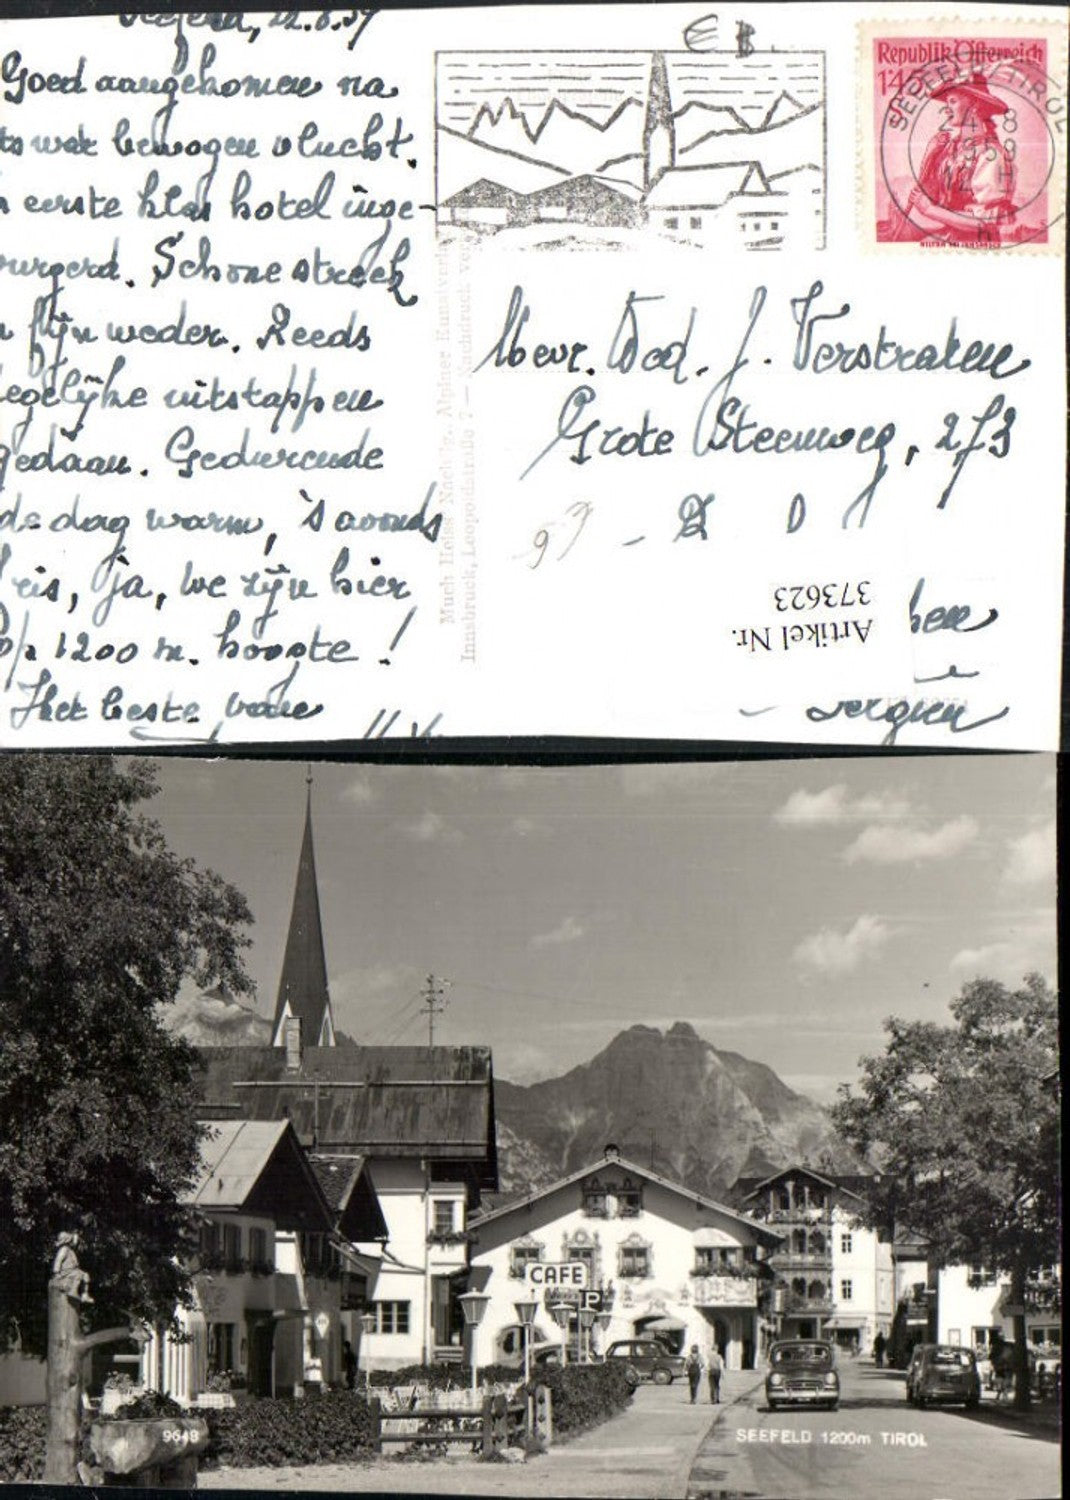 Seefeld, 22.8.59
Goed aangekomen na
iets wat bewogen vlucht.
eerste klas hotel inge-
burgerd. Schone streek
fijn weder. Reeds
degelijke uitstappen
gedaan. Gedurende
de dag warm, 's avonds
ja, we zijn hier
op 1200 m. hoogte!
Het beste van
E B.
Republik Österreich
1'45
SEEFELD TIROL
24.-8
Much Heiss Nachfg., Alpiner Kunstverlag
Innsbruck, Leopoldstraße 7 — Nachdruck verb
Mevr. Wed. J. Verstraelen
Grote Steenweg, 273
Artikel Nr.
373623
CAFE
P
9648
SEEFELD 1200m TIROL